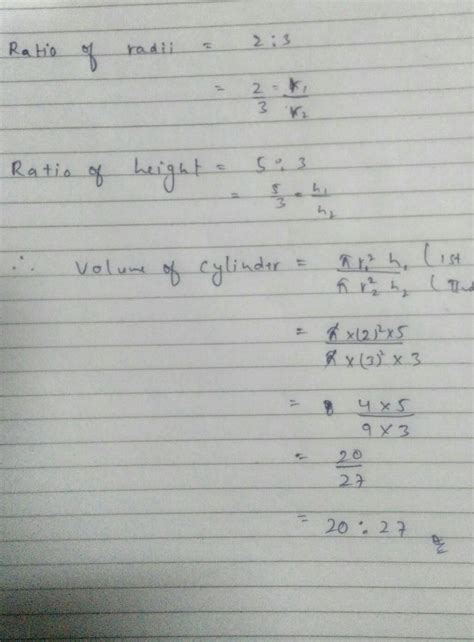 Ratio of radii = 2 : 3
= 2/3 = r₁/r₂
Ratio of height = 5 : 3
= 5/3 = h₁/h₂
∴ Volume of cylinder = π r₁² h₁ / π r₂² h₂ ( 1st (
= π × (2)² × 5 / π × (3)² × 3
= 4 × 5 / 9 × 3
= 20/27
= 20 : 27